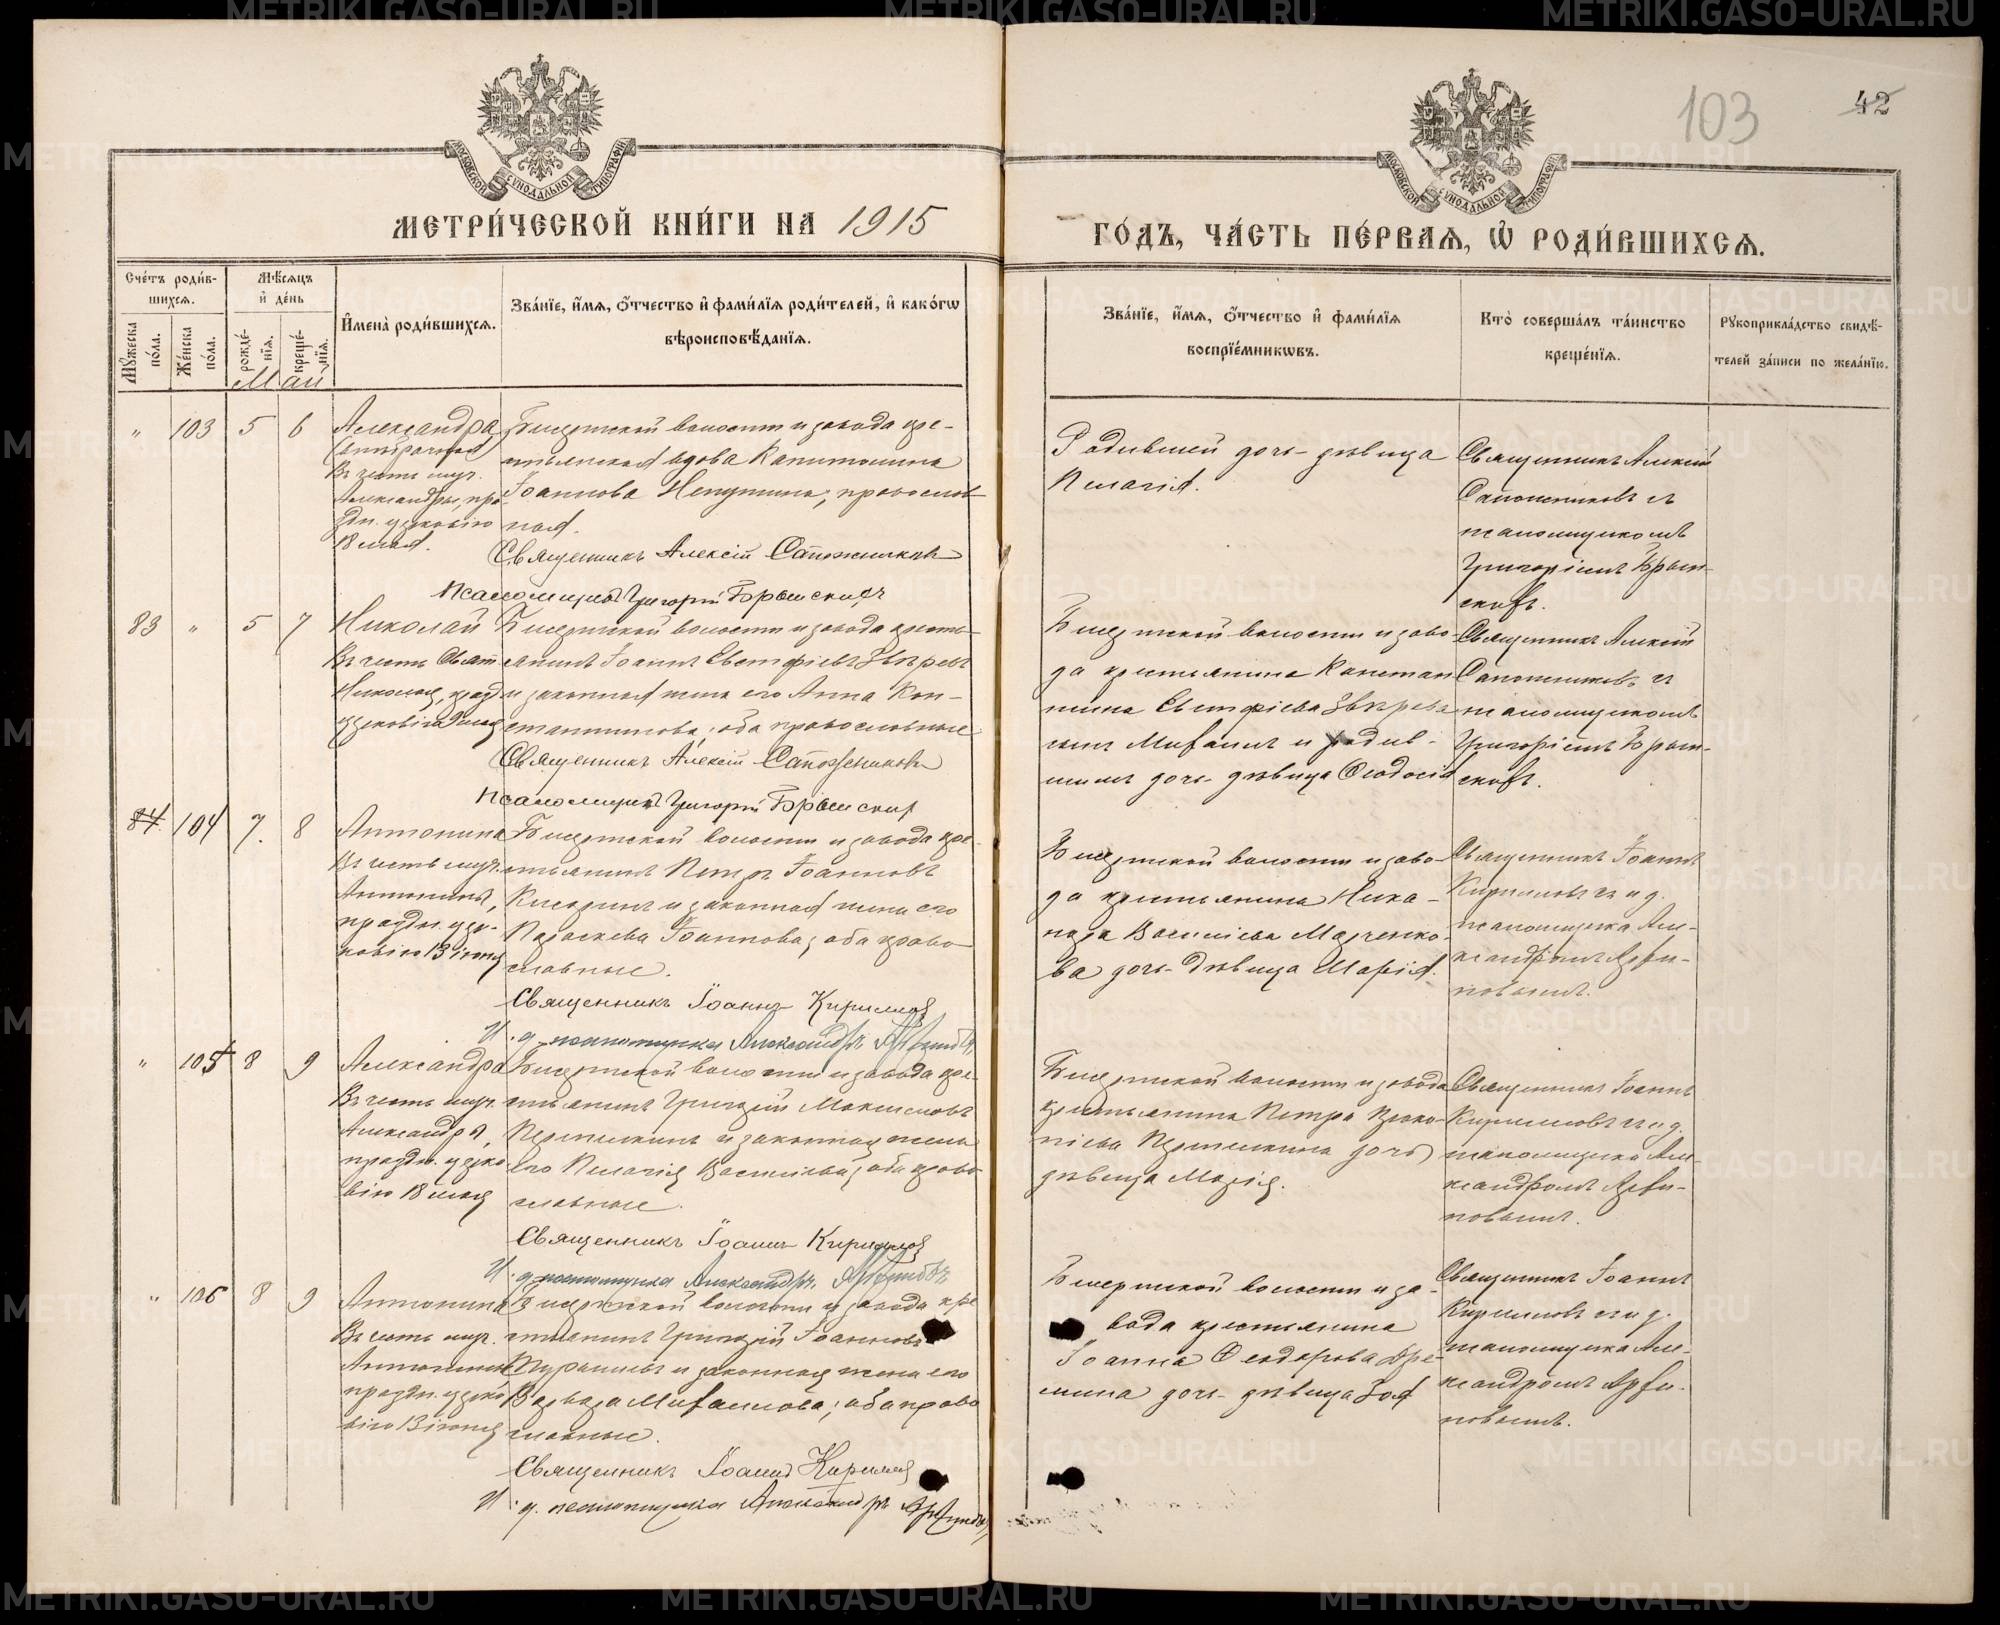 103
42
МЕТРИ́ЧЕСКОЙ КНИ́ГИ НА 1915
ГО́ДЪ, ЧА́СТЬ ПЕ́РВАЯ, Ѡ҆ РОДИ́ВШИХСЯ.
Сче́тъ роди́в-
шихся.
Мѹ́жеска по́ла.
Же́нска по́ла.
Мѣ́сяцъ
и҆ де́нь
рожде́-
нїя.
креще́-
нїя.
Май
И҆мена̀ роди́вшихся.
Зва́нїе, и҆́мя, ѻ҆́тчество и҆ фами́лїя роди́телей, и҆ како́гѡ
вѣроисповѣ́данїя.
Зва́нїе, и҆́мя, ѻ҆́тчество и҆ фами́лїя
воспрїе́мникѡвъ.
Кто̀ соверша́лъ та́инство
креще́нїя.
Рѹкоприкла́дство свидѣ́-
телей за́писи по жела́нїю.
" 103 5 6
Александра
Въ честь муч.
Александры, пра-
здн. церковію
18 мая.
Бисертской волости и завода кре-
стьянская вдова Капитолина
Іоаннова православ-
ная.
Священникъ Алексій Сапожниковъ
Псаломщикъ Григорій
Родившей дочь дѣвица
Пелагія.
Священникъ Алексій
Сапожниковъ съ
псаломщикомъ
Григоріемъ
83 " 5 7
Николай
Въ честь Свят.
Николая, празд.
церковію 9 мая
Бисертской волости и завода кресть-
янинъ Іоаннъ Евстафіевъ Звѣревъ
и законная жена его Анна Кон-
стантинова; оба православные
Священникъ Алексій Сапожниковъ
Псаломщикъ Григорій
Бисертской волости и заво-
да крестьянина Констан-
тина Евстафіева Звѣрева
сынъ Михаилъ и родив-
шимъ дочь дѣвица Ѳеодосія
Священникъ Алексій
Сапожниковъ съ
псаломщикомъ
Григоріемъ
84 104 7. 8
Антонина
Въ честь муч.
Антонины,
праздн. цер-
ковію 13 іюня
Бисертской волости и завода кре-
стьянинъ Петръ Іоанновъ
и законная жена его
Параскева Іоаннова; оба право-
славные.
Священникъ Іоаннъ Кирилловъ
И. д. псаломщика Александръ
Бисертской волости и заво-
да крестьянина Ника-
нора Васильева
дочь дѣвица Марія.
Священникъ Іоаннъ
Кирилловъ съ и. д.
псаломщика Але-
ксандромъ
" 105 8 9
Александра
Въ честь муч.
Александры,
праздн. церко-
вію 18 мая
Бисертской волости и завода кре-
стьянинъ Григорій Максимовъ
и законная жена
его Пелагія Васильева; оба право-
славные.
Священникъ Іоаннъ Кирилловъ
И. д. псаломщика Александръ
Бисертской волости и завода
крестьянина Петра Проко-
піева дочь
дѣвица Марія.
Священникъ Іоаннъ
Кирилловъ съ и. д.
псаломщика Але-
ксандромъ
" 106 8 9
Антонина
Въ честь муч.
Антонины
праздн. церко-
вію 13 іюня
Бисертской волости и завода кре-
стьянинъ Григорій Іоанновъ
и законная жена его
Варвара Михаилова; оба право-
славные.
Священникъ Іоаннъ Кирилловъ
И. д. псаломщика Александръ
Бисертской волости и за-
вода крестьянина
Іоанна Ѳеодорова
дочь дѣвица Зоя
Священникъ Іоаннъ
Кирилловъ съ и. д.
псаломщика Але-
ксандромъ
METRIKI.GASO-URAL.RU